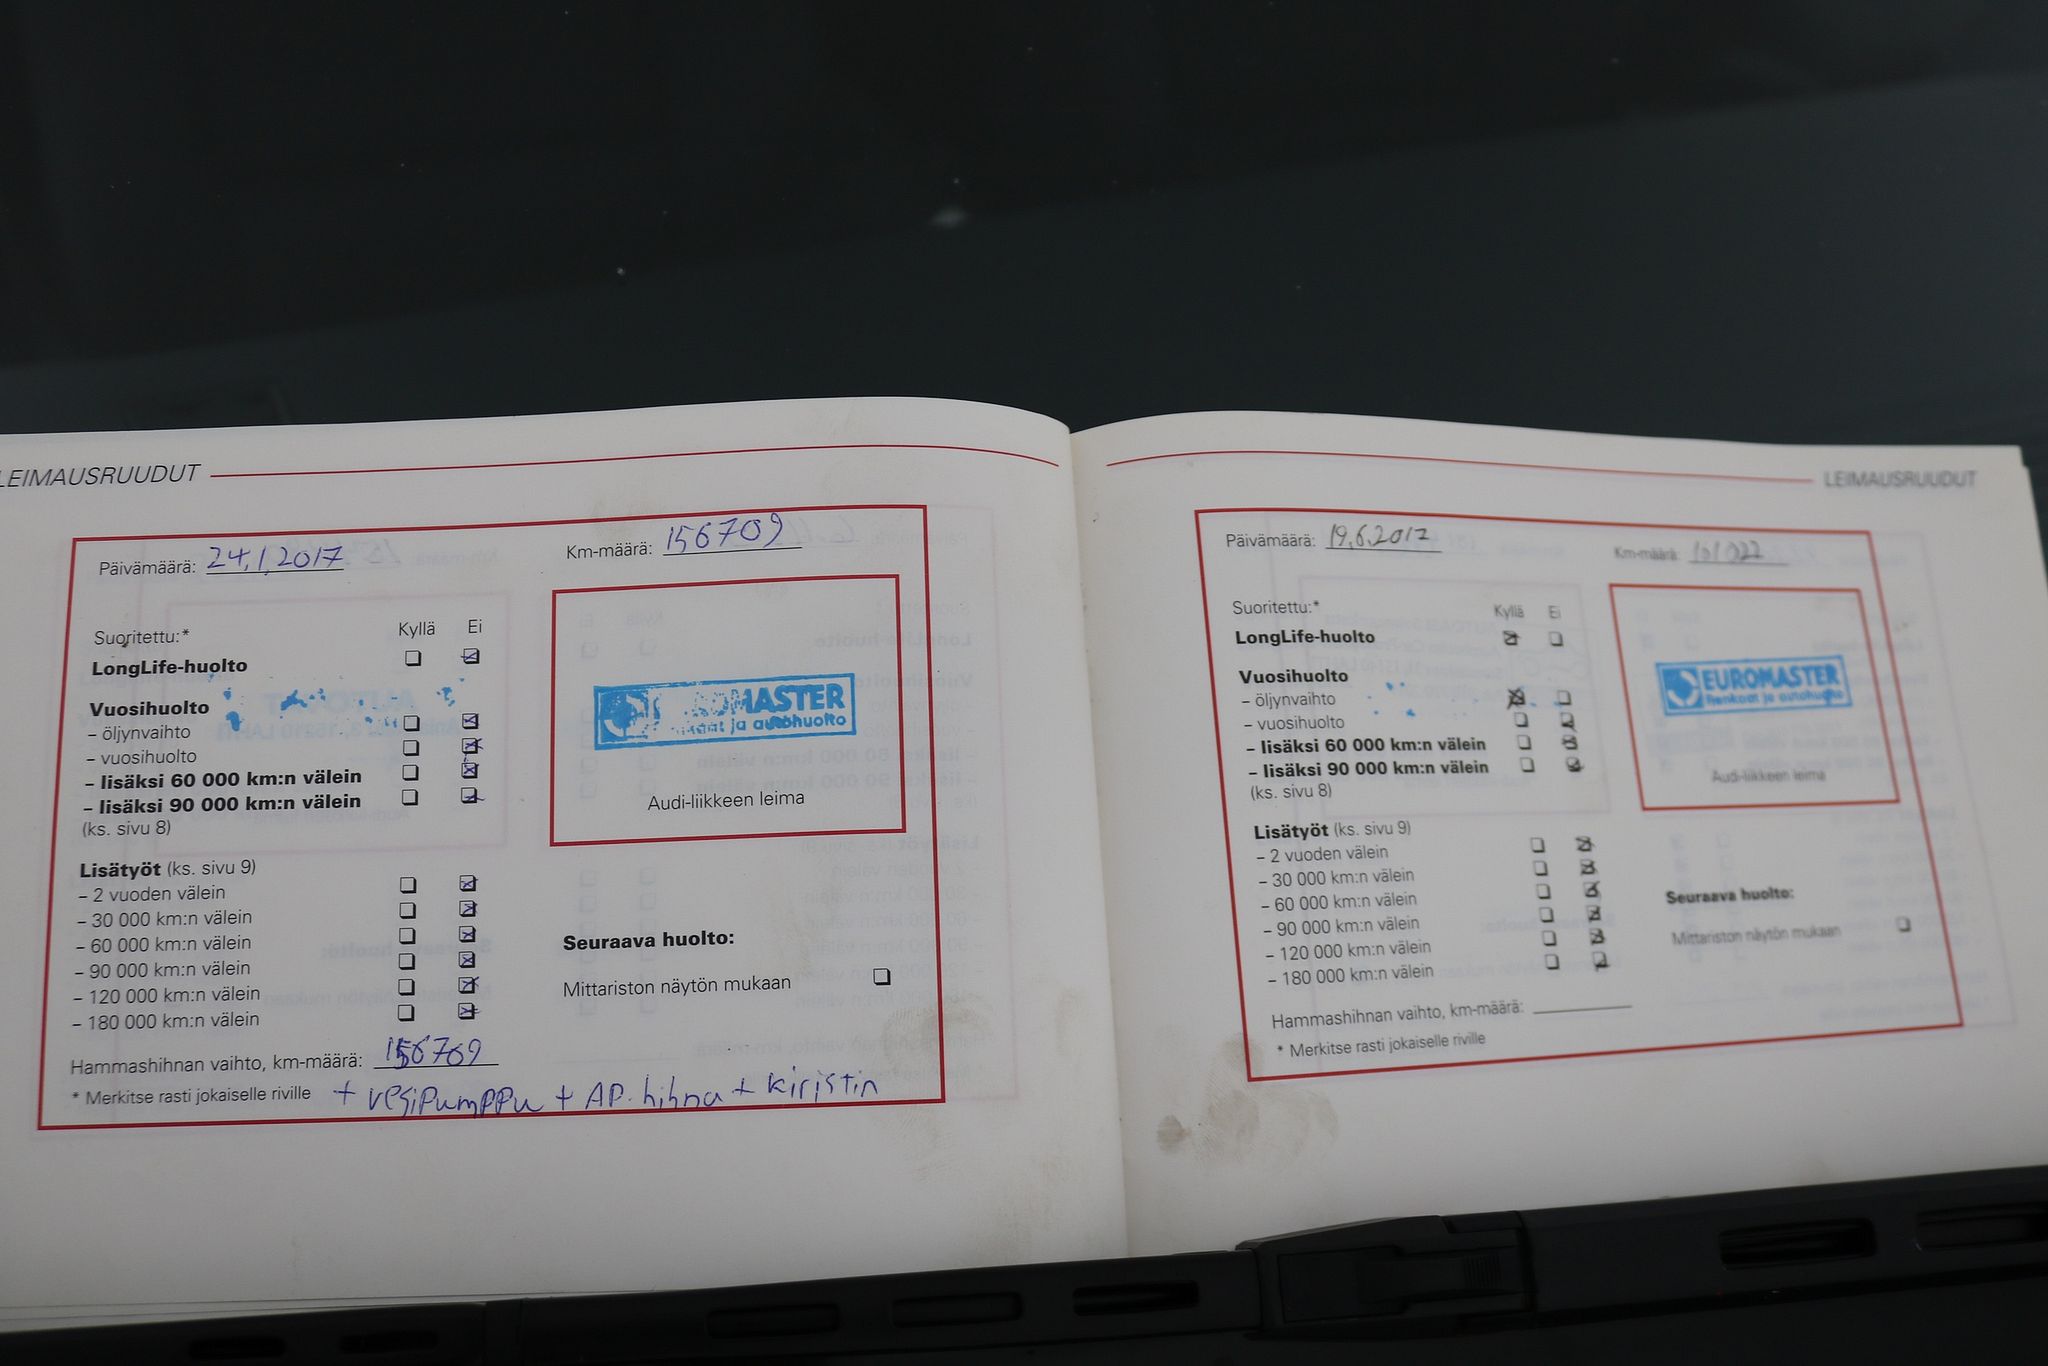 LEIMAUSRUUDUT
Päivämäärä: 24.1.2017
Km-määrä: 156709
Suoritettu:*
Kyllä Ei
LongLife-huolto
Vuosihuolto
– öljynvaihto
– vuosihuolto
– lisäksi 60 000 km:n välein
– lisäksi 90 000 km:n välein
(ks. sivu 8)
MASTER
ja autohuolto
Audi-liikkeen leima
Lisätyöt (ks. sivu 9)
– 2 vuoden välein
– 30 000 km:n välein
– 60 000 km:n välein
– 90 000 km:n välein
– 120 000 km:n välein
– 180 000 km:n välein
Seuraava huolto:
Mittariston näytön mukaan
Hammashihnan vaihto, km-määrä: 156709
* Merkitse rasti jokaiselle riville + vesipumppu + AP. hihna + kiristin
LEIMAUSRUUDUT
Päivämäärä: 19.6.2017
Km-määrä: 161022
Suoritettu:*
Kyllä Ei
LongLife-huolto
Vuosihuolto
– öljynvaihto
– vuosihuolto
– lisäksi 60 000 km:n välein
– lisäksi 90 000 km:n välein
(ks. sivu 8)
EUROMASTER
Renkaat ja autohuolto
Audi-liikkeen leima
Lisätyöt (ks. sivu 9)
– 2 vuoden välein
– 30 000 km:n välein
– 60 000 km:n välein
– 90 000 km:n välein
– 120 000 km:n välein
– 180 000 km:n välein
Seuraava huolto:
Mittariston näytön mukaan
Hammashihnan vaihto, km-määrä:
* Merkitse rasti jokaiselle riville